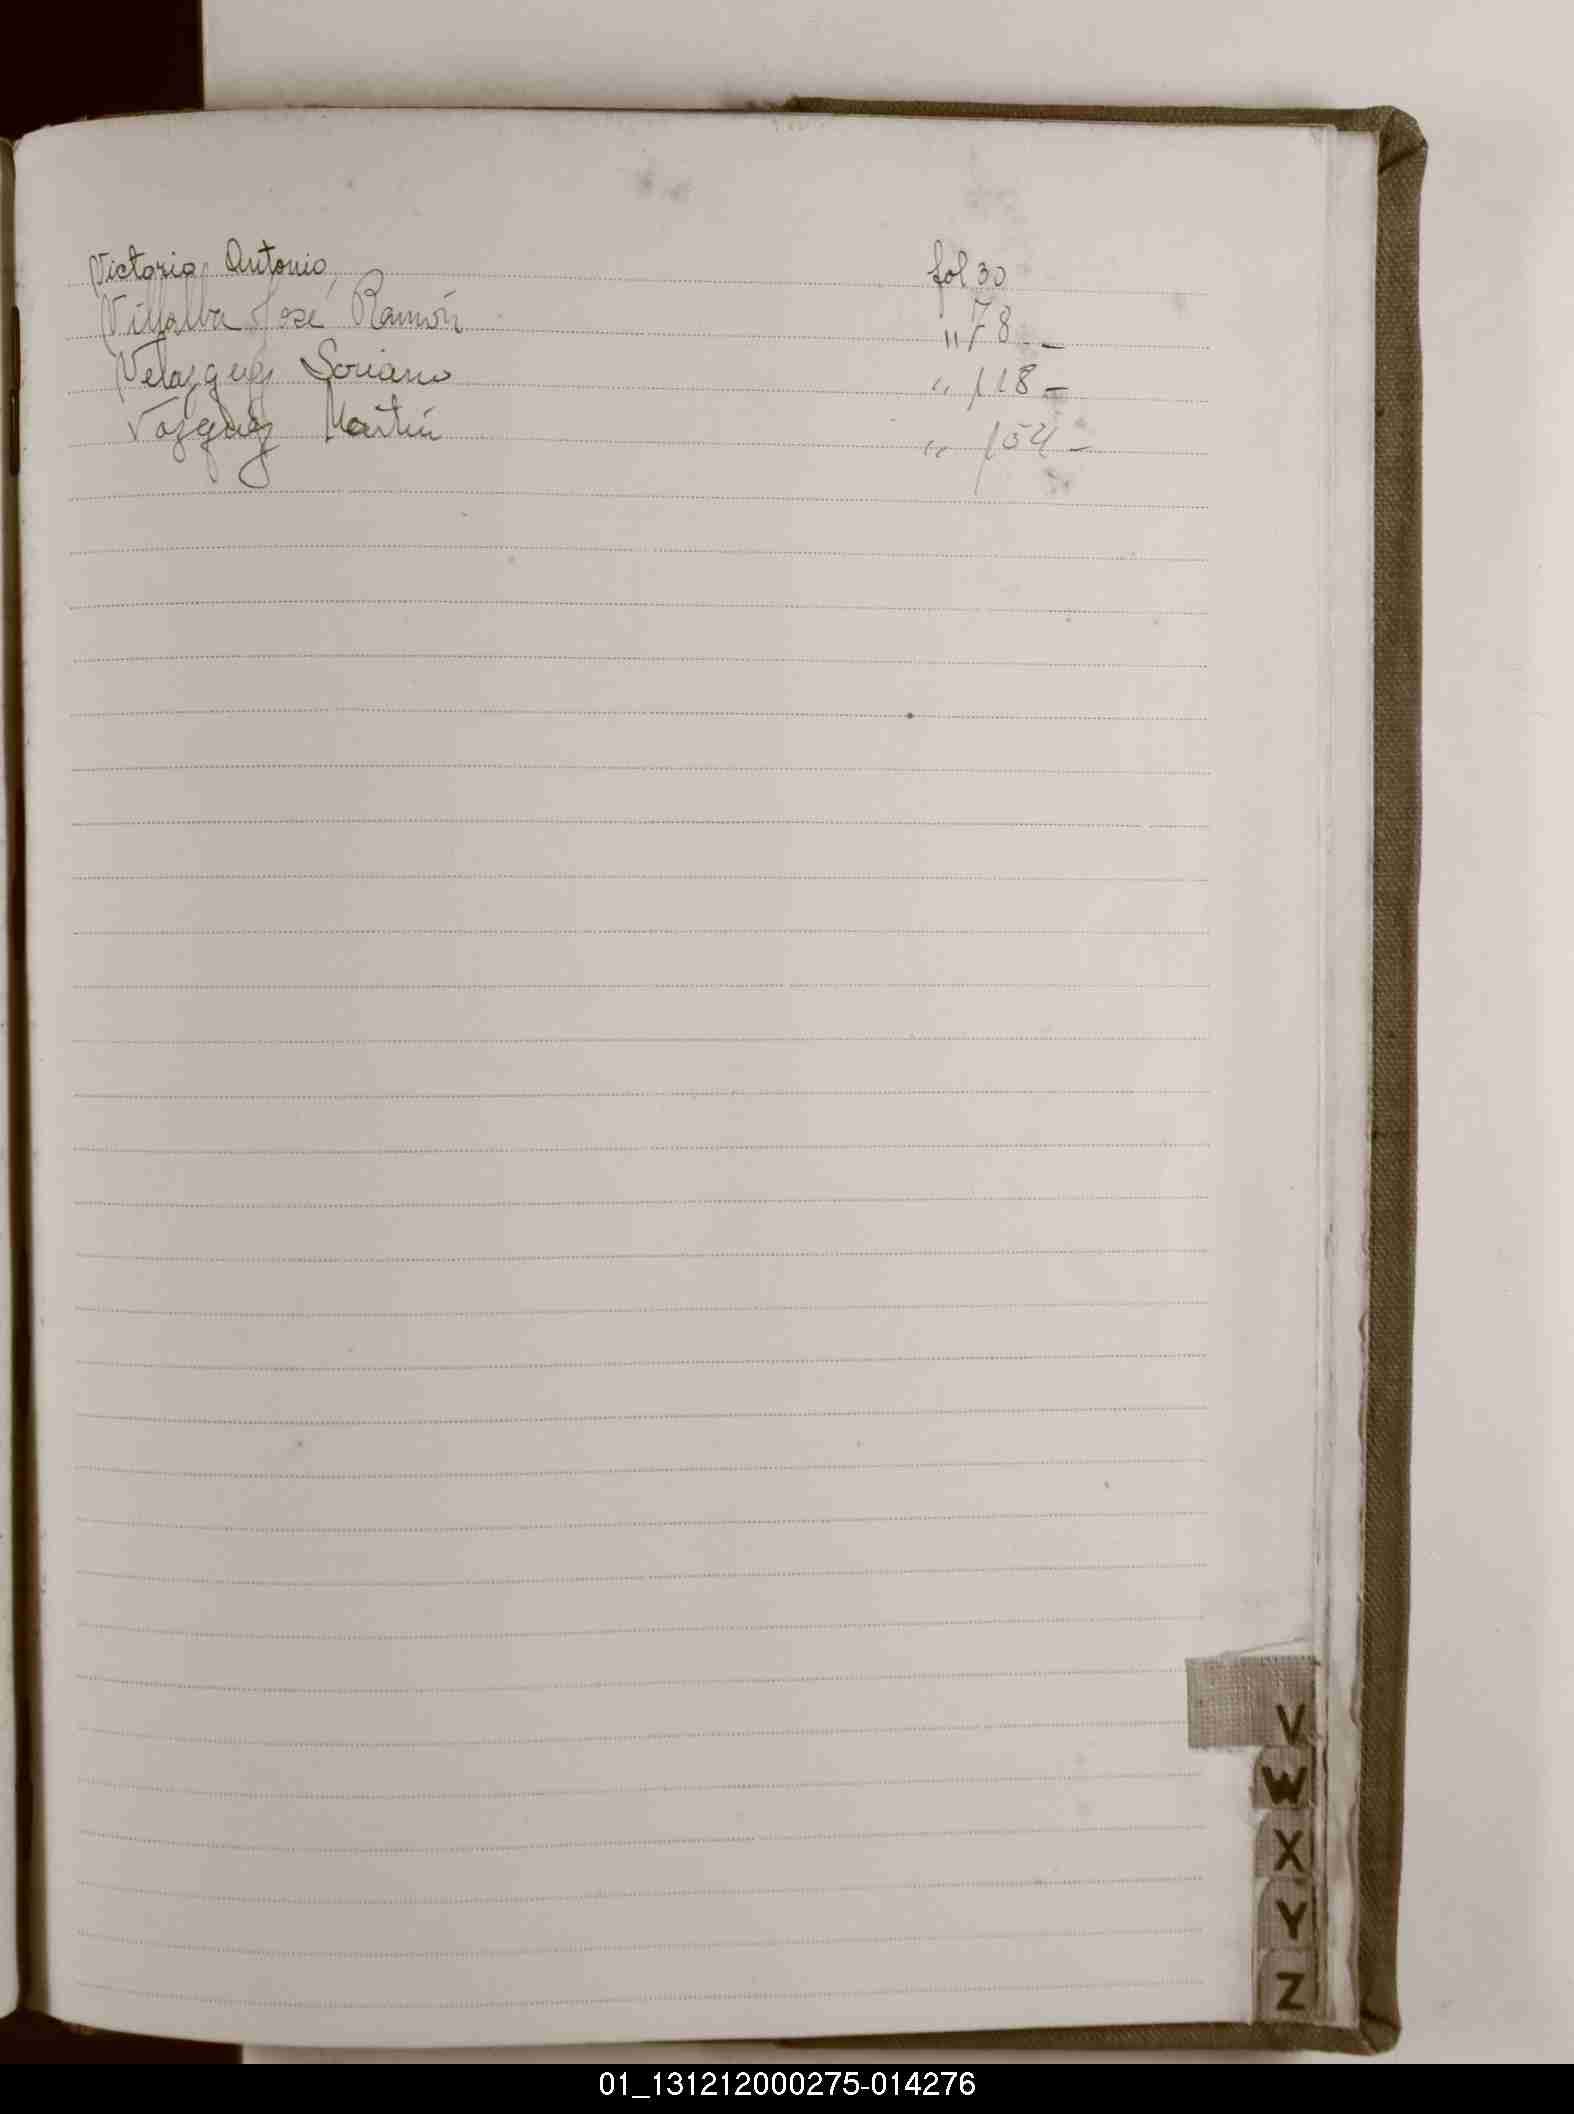 Victoria, Antonio, fol 30
Villalba José Ramón " 78 -
Velazquez Soriano " 118 -
Vazquez Martín " 154 -
V
W
X
Y
Z
01_131212000275-014276